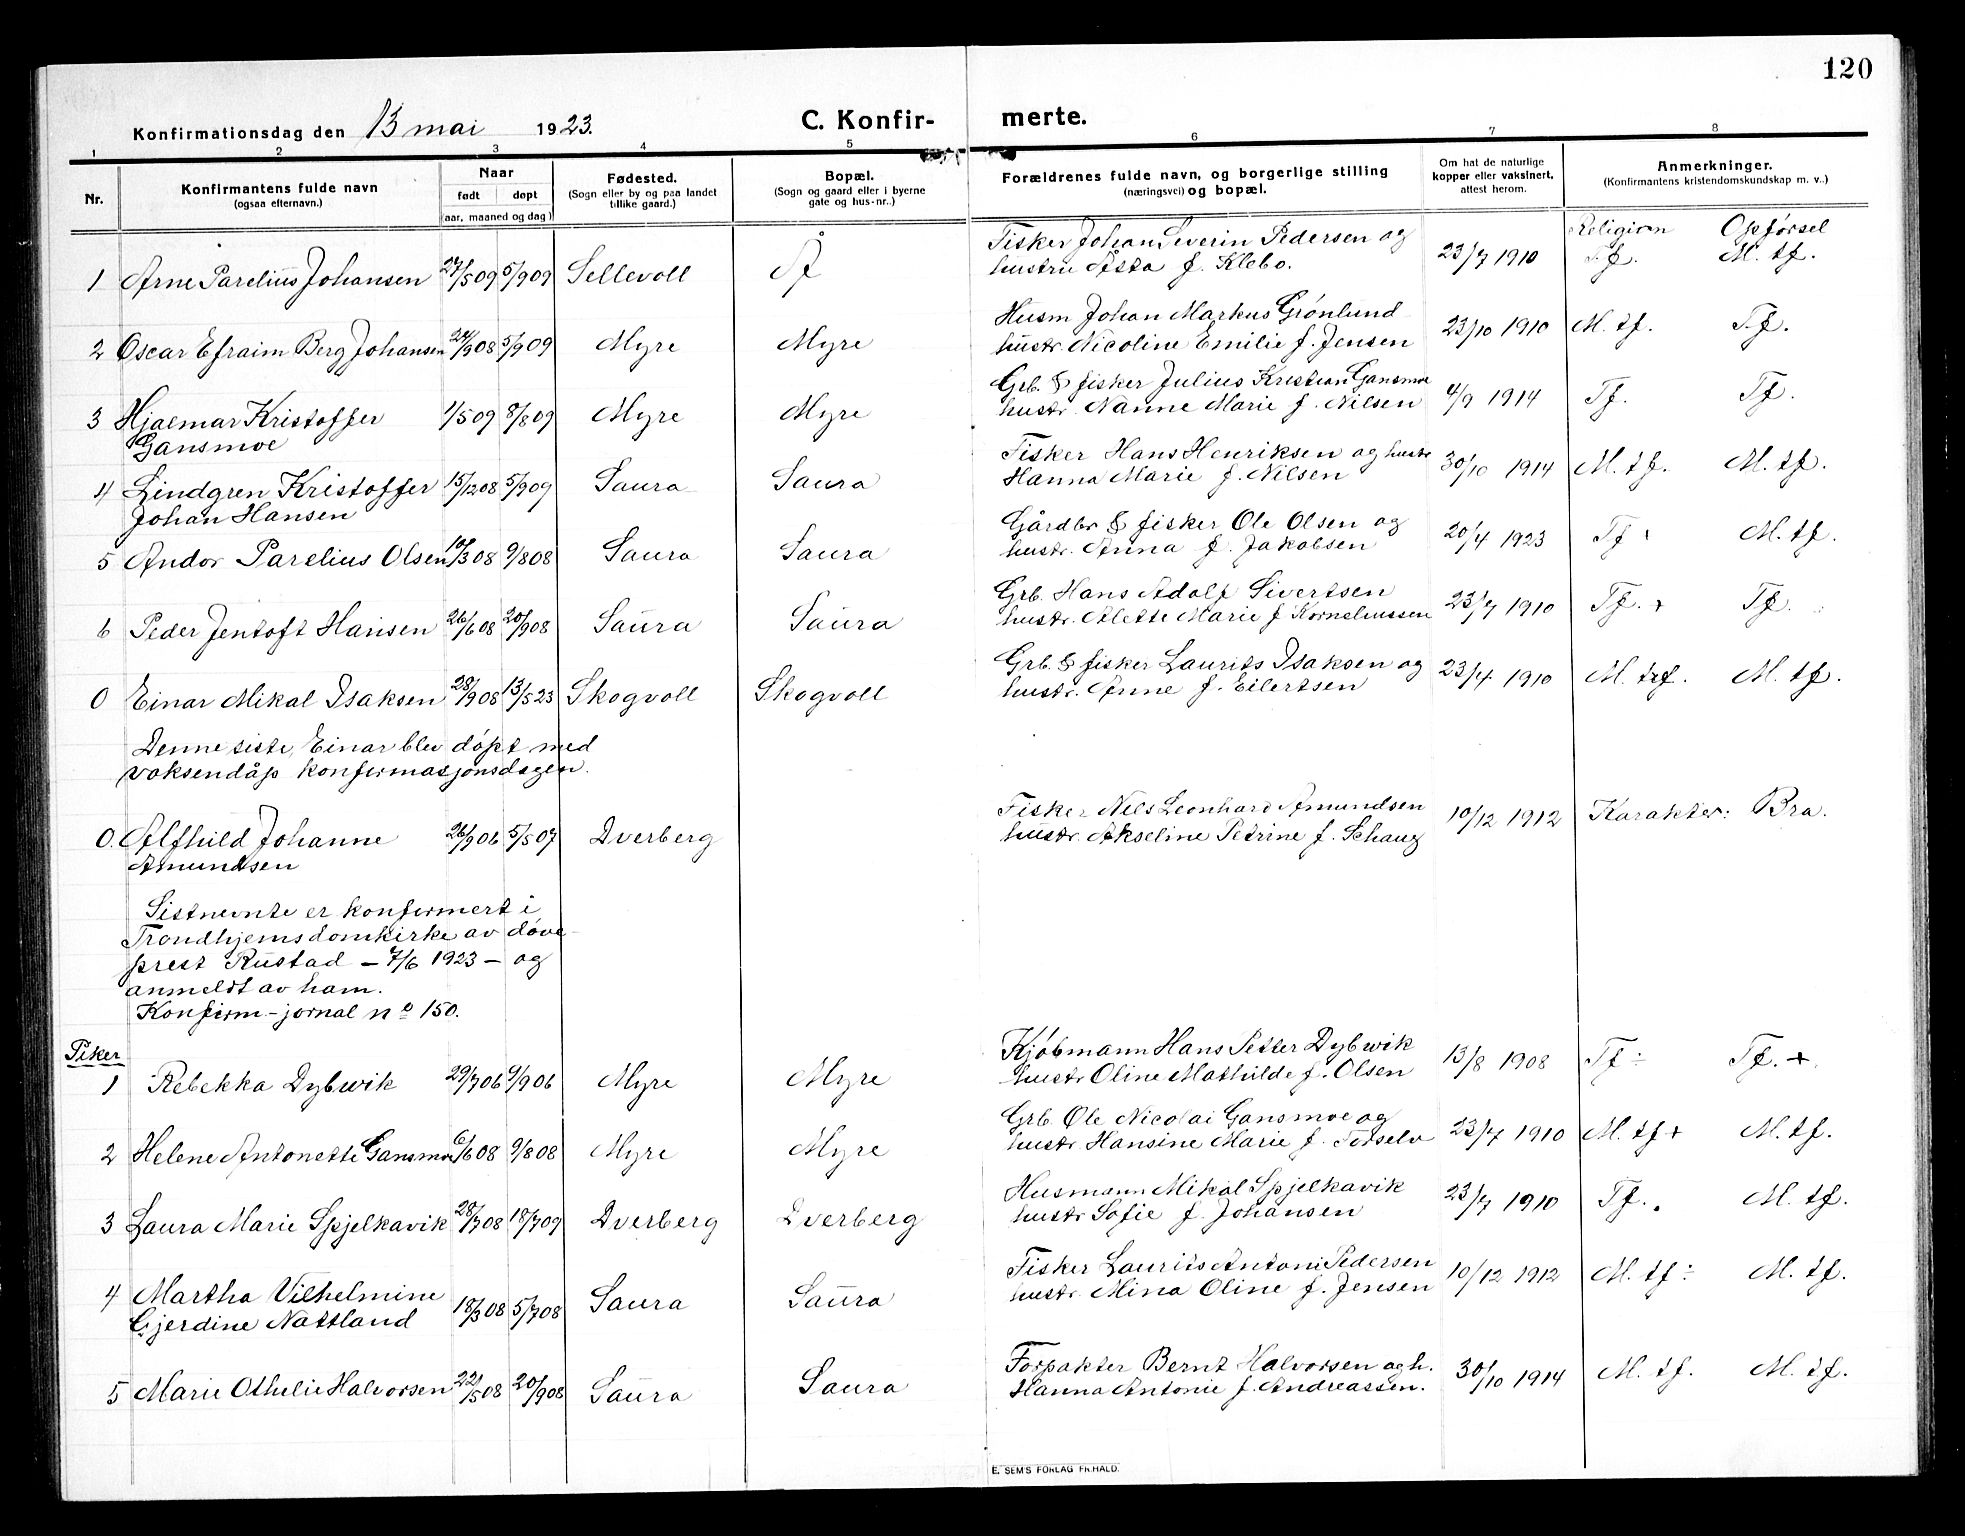 120
Konfirmationsdag den 13 mai 1923. C. Konfir- merte.
1 2 3 4 5 6 7 8
Nr.
Konfirmantens fulde navn
(ogsaa efternavn.)
Naar
født døpt
(aar, maaned og dag)
Fødested.
(Sogn eller by og paa landet
tillike gaard.)
Bopæl.
(Sogn og gaard eller i byerne
gate og hus-nr.)
Forældrenes fulde navn, og borgerlige stilling
(næringsvei) og bopæl.
Om hat de naturlige
kopper eller vaksinert,
attest herom.
Anmerkninger.
(Konfirmantens kristendomskundskap m. v.)
Religion Opførsel
1 Arne Parelius Johansen 27/5 09 5/9 09 Sellevoll Å
Fisker Johan Severin Pedersen og
hustru Asta f. Klebo. 23/7 1910 T.f. M. tf.
2 Oscar Efraim Berg Johansen 24/9 08 5/9 09 Myre Myre
Husm Johan Markus Grønlund
hustr. Nicoline Emilie f. Jensen 23/10 1910 M. tf. T.f.
3 Hjalmar Kristoffer 1/5 09 8/8 09 Myre Myre
Gansmoe
Grb. & fisker Julius Kristian Gansmoe
hustr. Nanne Marie f. Nilsen 4/9 1914 Tf. Tf.
4 Lindgren Kristoffer 15/12 08 5/9 09 Saura Saura
Johan Hansen
Fisker Hans Henriksen og hustr
Hanna Marie f. Nilsen 30/10 1914 M. tf. M. tf.
5 Andor Parelius Olsen 10/3 08 9/8 08 Saura Saura
Gårdbr & fisker Ole Olsen og
hustr. Anna f. Jakobsen 20/4 1923 Tf M. tf.
6 Peder Jentoft Hansen 26/6 08 20/9 08 Saura Saura
Grb. Hans Adolf Sivertsen
hustr. Alette Marie f Korneliussen 23/7 1910 Tf. + Tf.
0 Einar Mikal Isaksen 28/9 08 13/5 23 Skogvoll Skogvoll
Grb. & fisker Laurits Isaksen og
hustr. Anne f. Eilertsen 23/4 1910 M. tf. M. tf.
Denne siste, Einar blev døpt med
voksendåp konfirmasjonsdagen.
0. Alfhild Johanne 26/9 06 5/5 07 Dverberg
Amundsen
Fisker Nils Leonhard Amundsen
hustr. Akseline Petrine f. Schaug 10/12 1912 Karakter: Bra.
Sistnevnte er konfirmert i
Trondhjems domkirke av døve-
prest Rustad – 7/6 1923 – og
anmeldt av ham.
Konfirm-jornal nº 150.
Piker
1 Rebekka Dybwik 29/7 06 9/9 06 Myre Myre
Kjøbmann Hans Petter Dybwik
hustr Oline Mathilde f. Olsen 13/8 1908 Tf ÷ Tf. +
2 Helene Antonette Gansmoe 6/6 08 9/8 08 Myre Myre
Grb. Ole Nicolai Gansmoe og
hustr. Hansine Marie f. Torselv 23/7 1910 M. tf + M. tf.
3 Laura Marie Spjelkavik 28/7 08 18/7 09 Dverberg Dverberg
Husmann Mikal Spjelkavik
hustr Sofie f. Johansen 23/7 1910 Tf. M. tf.
4 Martha Vilhelmine
Gjerdine Nattland 18/3 08 5/7 08 Saura Saura
Fisker Laurits Antoni Pedersen
hustr. Mina Oline f. Jensen 10/12 1912 M. tf ÷ M. tf.
5 Marie Othelie Halvorsen 22/5 08 20/9 08 Saura Saura
Forpakter Bernt Halvorsen og h.
Hanna Antonie f. Andreassen. 30/10 1914 M. tf. M. tf.
E. SEMS FORLAG FR.HALD.